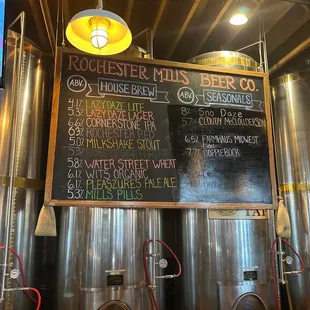 ROCHESTER MILLS BEER CO.
ABV
HOUSE BREW
4.1% LAZYDAZE LITE
5.3% LAZYDAZE LAGER
6.6% CORNERSTONE IPA
6.3% ROCHESTER RED
5.0% MILKSHAKE STOUT
5.8% WATER STREET WHEAT
6.1% WITS ORGANIC
6.1% PLEASZURES PALE ALE
5.3% MILLS PILLS
ABV
SEASONALS
8% Sno Daze
5.7% CLOUDY McCOLDERSON
6.5% FARMHAUS MIDWEST
7.7% DOPPLEBOCK
TAP